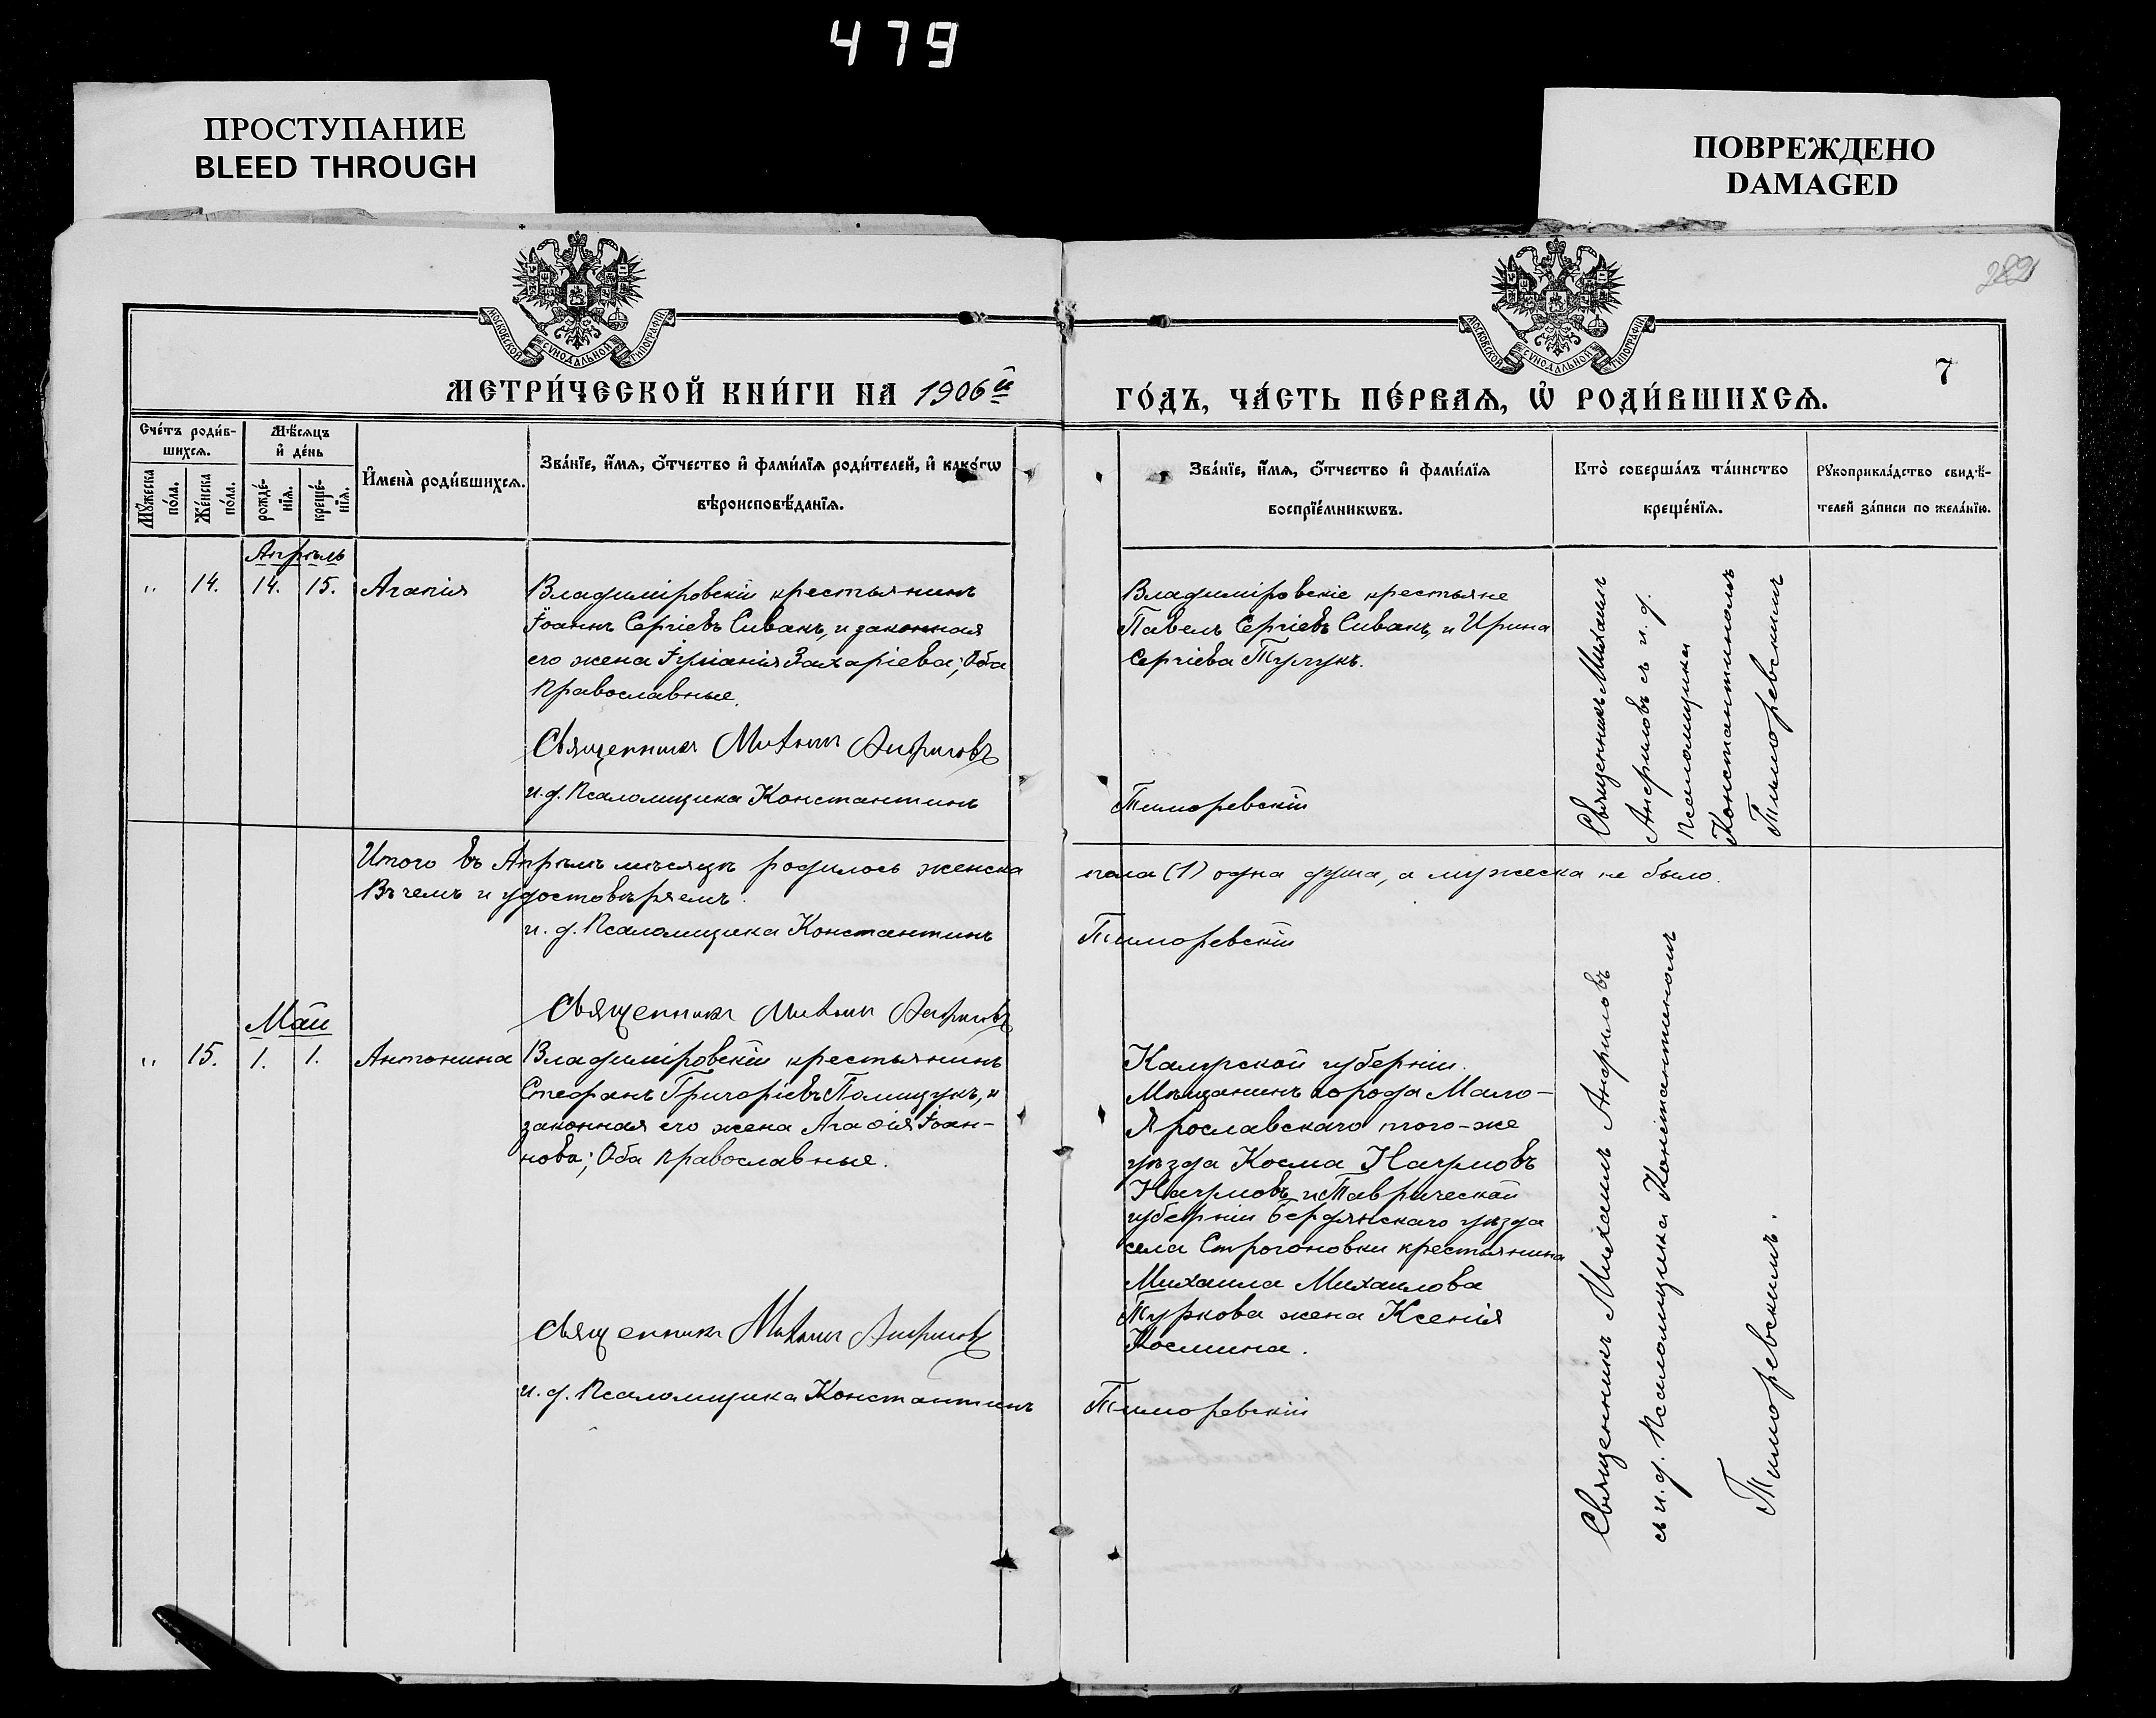 479
ПРОСТУПАНИЕ
BLEED THROUGH
ПОВРЕЖДЕНО
DAMAGED
МОСКОВСКОЙ СѴНОДАЛЬНОЙ ТИПОГРАФІИ
МОСКОВСКОЙ СѴНОДАЛЬНОЙ ТИПОГРАФІИ
7
МЕТРИ́ЧЕСКОЙ КНИ́ГИ НА 1906й
ГО́ДЪ, ЧА́СТЬ ПЕ́РВАѦ, Ѡ҆ РОДИ́ВШИХСѦ.
Сче́тъ роди́в-
шихсѧ.
Мꙋ́жеска по́ла.
Же́нска по́ла.
Мѣ́сѧцъ
и҆ де́нь
рожде́-
нїѧ.
креще́-
нїѧ.
И҆мена̀ роди́вшихсѧ.
Зва́нїе, и҆́мѧ, ѻ҆́тчество и҆ фами́лїѧ роди́телей, и҆ како́гѡ
вѣроисповѣ́данїѧ.
Зва́нїе, и҆́мѧ, ѻ҆́тчество и҆ фами́лїѧ
воспрїе́мникѡвъ.
Кто̀ соверша́лъ та́инство
креще́нїѧ.
Рꙋкоприкла́дство свидѣ́-
телей за́писи по жела́нїю.
Апрѣль
„ 14. 14. 15. Агапія
Владиміровскій крестьянинъ
Іоаннъ Сергіевъ Сивакъ, и законная
его жена Іуліанія Захаріева; Оба
Православные.
Священникъ Михаилъ Анфиловъ
и. д. Псаломщика Константинъ
Владиміровскіе крестьяне
Павелъ Сергіевъ Сивакъ, и Ирина
Сергіева
Тиморевскій
Священникъ Михаилъ
Анфиловъ съ и. д.
Псаломщика
Константиномъ
Тиморевскимъ
Итого въ Апрѣлѣ мѣсяцѣ родилось женска
пола (1) одна душа, а мужеска не было.
Въ чемъ и удостовѣряемъ:
и. д. Псаломщика Константинъ
Тиморевскій
Священникъ Михаилъ Анфиловъ
Май
„ 15. 1. 1. Антонина
Владиміровскій крестьянинъ
Стефанъ Григоріевъ Полищукъ, и
законная его жена Агафія Іоан-
нова; Оба Православные.
Священникъ Михаилъ Анфиловъ
и. д. Псаломщика Константинъ
Калужской губерніи
Мѣщанинъ города Мало-
Ярославскаго того-же
уѣзда Косма Наумовъ
Наумовъ и Таврической
губерніи Бердянскаго уѣзда
села Строгоновки крестьянина
Михаила Михаилова
Туркова жена Ксенія
Космина.
Тиморевскій
Священникъ Михаилъ Анфиловъ
съ и. д. Псаломщика Константиномъ
Тиморевскимъ.